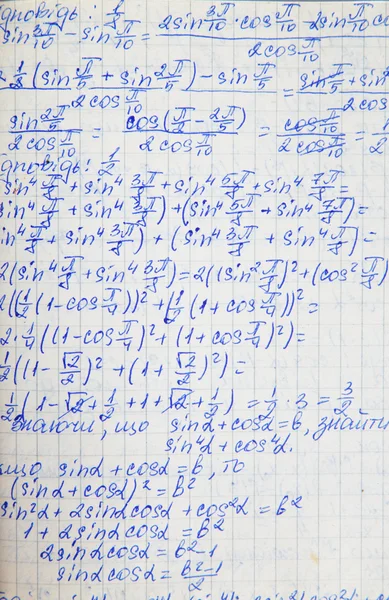 дповідь: 1/2
sin 3π/10 − sin π/10 = 2sin 3π/10 · cos π/10 − 2sin π/10 co
2cos π/10
2·1/2(sin π/5 + sin 2π/5) − sin π/5 / 2cos π/10 = sin π/5 + sin 2 / 2cos
sin 2π/5 / 2cos π/10 = cos(π/2 − 2π/5) / 2cos π/10 = cos π/10 / 2cos π/10 = 1/2
дповідь: 1/2
sin⁴ π/8 + sin⁴ 3π/8 + sin⁴ 5π/8 + sin⁴ 7π/8 =
sin⁴ π/8 + sin⁴ 3π/8) + (sin⁴ 5π/8 + sin⁴ 7π/8) =
in⁴ π/8 + sin⁴ 3π/8) + (sin⁴ 3π/8 + sin⁴ π/8) =
2(sin⁴ π/8 + sin⁴ 3π/8) = 2((sin² π/8)² + (cos² π/8)
2((1/2(1−cos π/4))² + (1/2(1+cos π/4))² =
2·1/4((1−cos π/4)² + (1+cos π/4)²) =
1/2((1−√2/2)² + (1+√2/2)²) =
1/2(1−√2+1/2+1+√2+1/2) = 1/2·3 = 3/2
Знаючи, що sinα + cosα = b, знайти
sin⁴α + cos⁴α.
кщо sinα + cosα = b, то
(sinα + cosα)² = b²
sin²α + 2sinαcosα + cos²α = b²
1 + 2sinαcosα = b²
2sinαcosα = b²−1
sinαcosα = b²−1/2